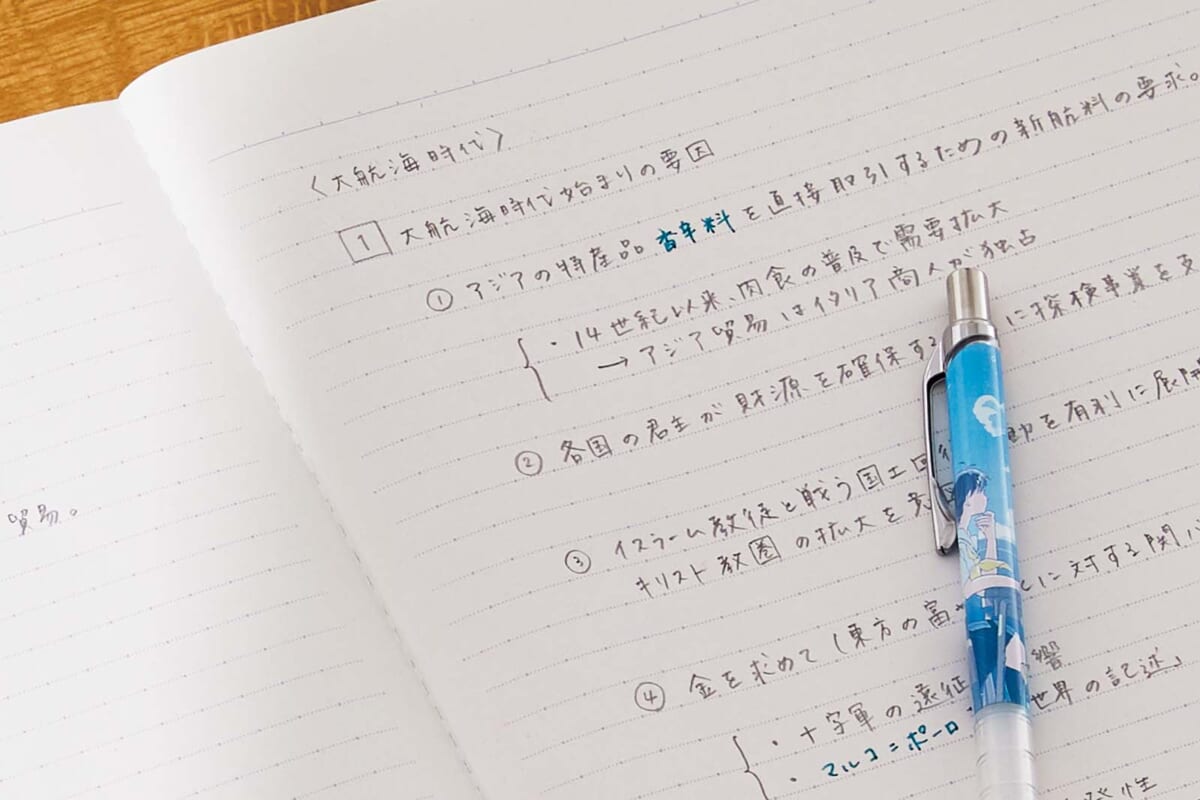 貿易。
〈大航海時代〉
1 大航海時代始まりの要因
① アジアの特産品 香辛料を直接取引するための新航料の要求。
・14世紀以来、肉食の普及で需要拡大
→アジア貿易はイタリア商人が独占
② 各国の君主が財源を確保する に探検事業を支
③ イスラーム教徒と戦う国土回 を有利に展開
キリスト教圏の拡大を
④ 金を求めて(東方の富 に対する関心
・十字軍の遠征 響
・マルコ=ポーロ 世界の記述」
性